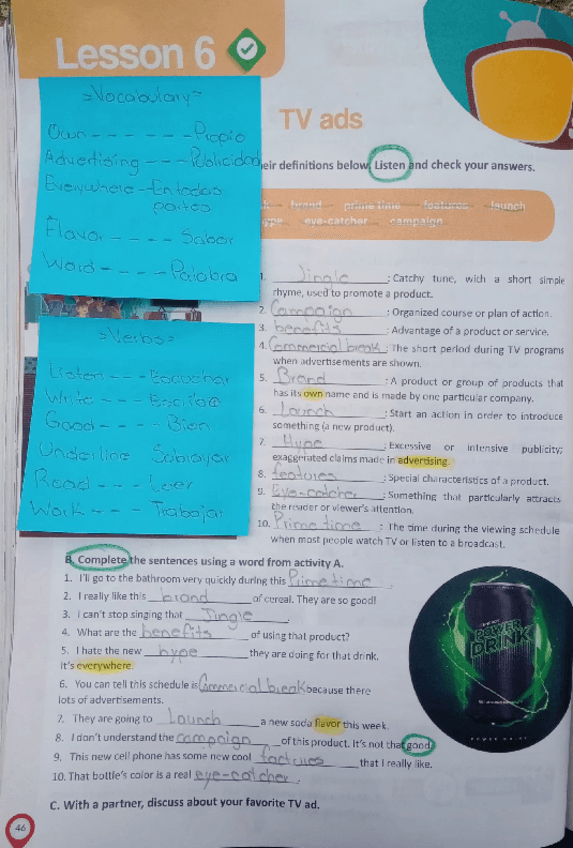 Lesson 6
TV ads
=Vocabulary=
Own - - - - - - -Propio
Advertising - - - -Publicidad
Everywhere -En todas
partes
Flavor - - - - Sabor
Word - - - - Palabra
=Verbs=
Listen - - - Escuchar
Write - - - Escribir
Good - - - - Bien
Underline Subrayar
Read - - - Leer
Work - - - Trabajar
heir definitions below. Listen and check your answers.
brand prime time features launch
ype eye-catcher campaign
1. Jingle : Catchy tune, with a short simple
rhyme, used to promote a product.
2. Campaign : Organized course or plan of action.
3. benefits : Advantage of a product or service.
4. Commercial break : The short period during TV programs
when advertisements are shown.
5. Brand : A product or group of products that
has its own name and is made by one particular company.
6. Launch : Start an action in order to introduce
something (a new product).
7. Hype : Excessive or intensive publicity;
exaggerated claims made in advertising.
8. features : Special characteristics of a product.
9. Eye-catcher : Something that particularly attracts
the reader or viewer's attention.
10. Prime time : The time during the viewing schedule
when most people watch TV or listen to a broadcast.
B. Complete the sentences using a word from activity A.
1. I'll go to the bathroom very quickly during this Prime time .
2. I really like this brand of cereal. They are so good!
3. I can't stop singing that Jingle .
4. What are the benefits of using that product?
5. I hate the new hype they are doing for that drink.
It's everywhere.
6. You can tell this schedule is Commercial break because there
lots of advertisements.
7. They are going to Launch a new soda flavor this week.
8. I don't understand the campaign of this product. It's not that good.
9. This new cell phone has some new cool factures that I really like.
10. That bottle's color is a real eye-catcher .
C. With a partner, discuss about your favorite TV ad.
POWER
DRINK
46